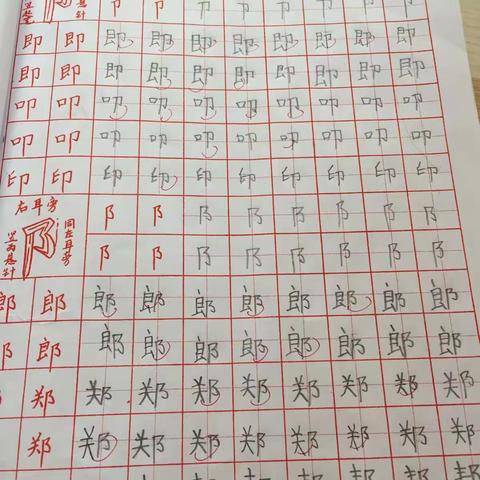 卩 卩 卩 卩 卩 卩 卩 卩
即 即 即 即 即 即 即 即 即 即
即 即 即 即 即 即 即 即 即 即
叩 叩 叩 叩 叩 叩 叩 叩 叩 叩
叩 叩 叩 叩 叩 叩 叩 叩 叩 叩
印 印 印 印 印 印 印 印 印 印
右耳旁
竖为悬针
阝
同左耳旁
阝 阝 阝 阝 阝 阝 阝 阝
阝 阝 阝 阝 阝 阝 阝 阝
郎 郎 郎 郎 郎 郎 郎 郎 郎 郎
郎 郎 郎 郎 郎 郎 郎 郎 郎
郑 郑 郑 郑 郑 郑 郑 郑 郑
郑 郑 郑 郑 郑 郑 郑 郑 郑